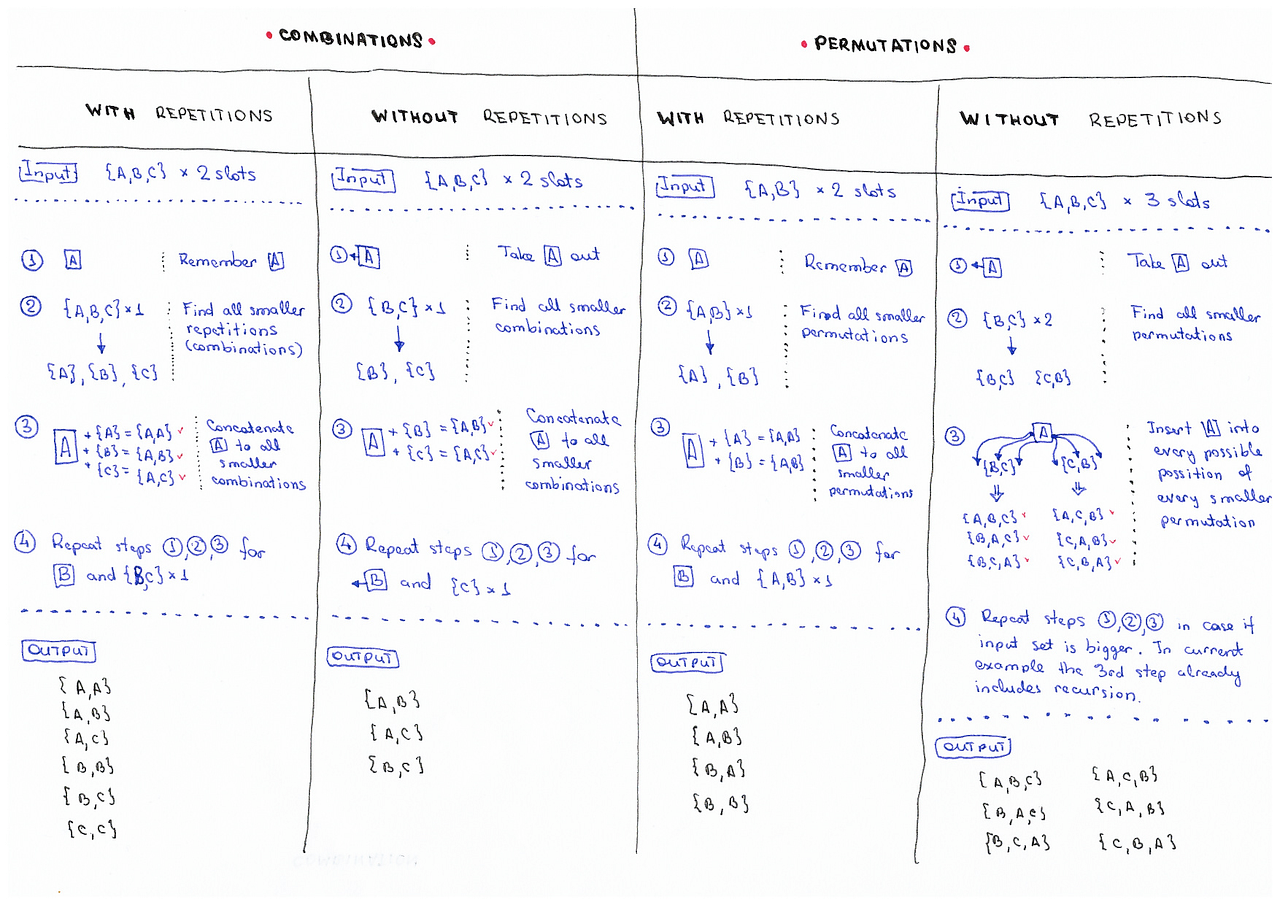 • COMBINATIONS •
• PERMUTATIONS •
WITH REPETITIONS
WITHOUT REPETITIONS
WITH REPETITIONS
WITHOUT REPETITIONS
Input {A,B,C} × 2 slots
① A
Remember A
② {A,B,C}×1
Find all smaller
repetitions
(combinations)
{A}, {B}, {C}
③ A
+ {A} = {A,A} ✓
+ {B} = {A,B} ✓
+ {C} = {A,C} ✓
Concatenate
A to all
smaller
combinations
④ Repeat steps ①,②,③ for
B and {B,C}×1
OUTPUT
{A,A}
{A,B}
{A,C}
{B,B}
{B,C}
{C,C}
Input {A,B,C} × 2 slots
① A
Take A out
② {B,C}×1
Find all smaller
combinations
{B}, {C}
③ A
+ {B} = {A,B} ✓
+ {C} = {A,C} ✓
Concatenate
A to all
smaller
combinations
④ Repeat steps ①,②,③ for
B and {C}×1
OUTPUT
{A,B}
{A,C}
{B,C}
Input {A,B} × 2 slots
① A
Remember A
② {A,B}×1
Find all smaller
permutations
{A}, {B}
③ A
+ {A} = {A,A}
+ {B} = {A,B}
Concatenate
A to all
smaller
permutations
④ Repeat steps ①,②,③ for
B and {A,B}×1
OUTPUT
{A,A}
{A,B}
{B,A}
{B,B}
Input {A,B,C} × 3 slots
① A
Take A out
② {B,C}×2
Find all smaller
permutations
{B,C} {C,B}
③ A
{B,C} {C,B}
{A,B,C} ✓ {A,C,B} ✓
{B,A,C} ✓ {C,A,B} ✓
{B,C,A} ✓ {C,B,A} ✓
Insert A into
every possible
possition of
every smaller
permutation
④ Repeat steps ①,②,③ in case if
input set is bigger. In current
example the 3rd step already
includes recursion.
OUTPUT
{A,B,C} {A,C,B}
{B,A,C} {C,A,B}
{B,C,A} {C,B,A}